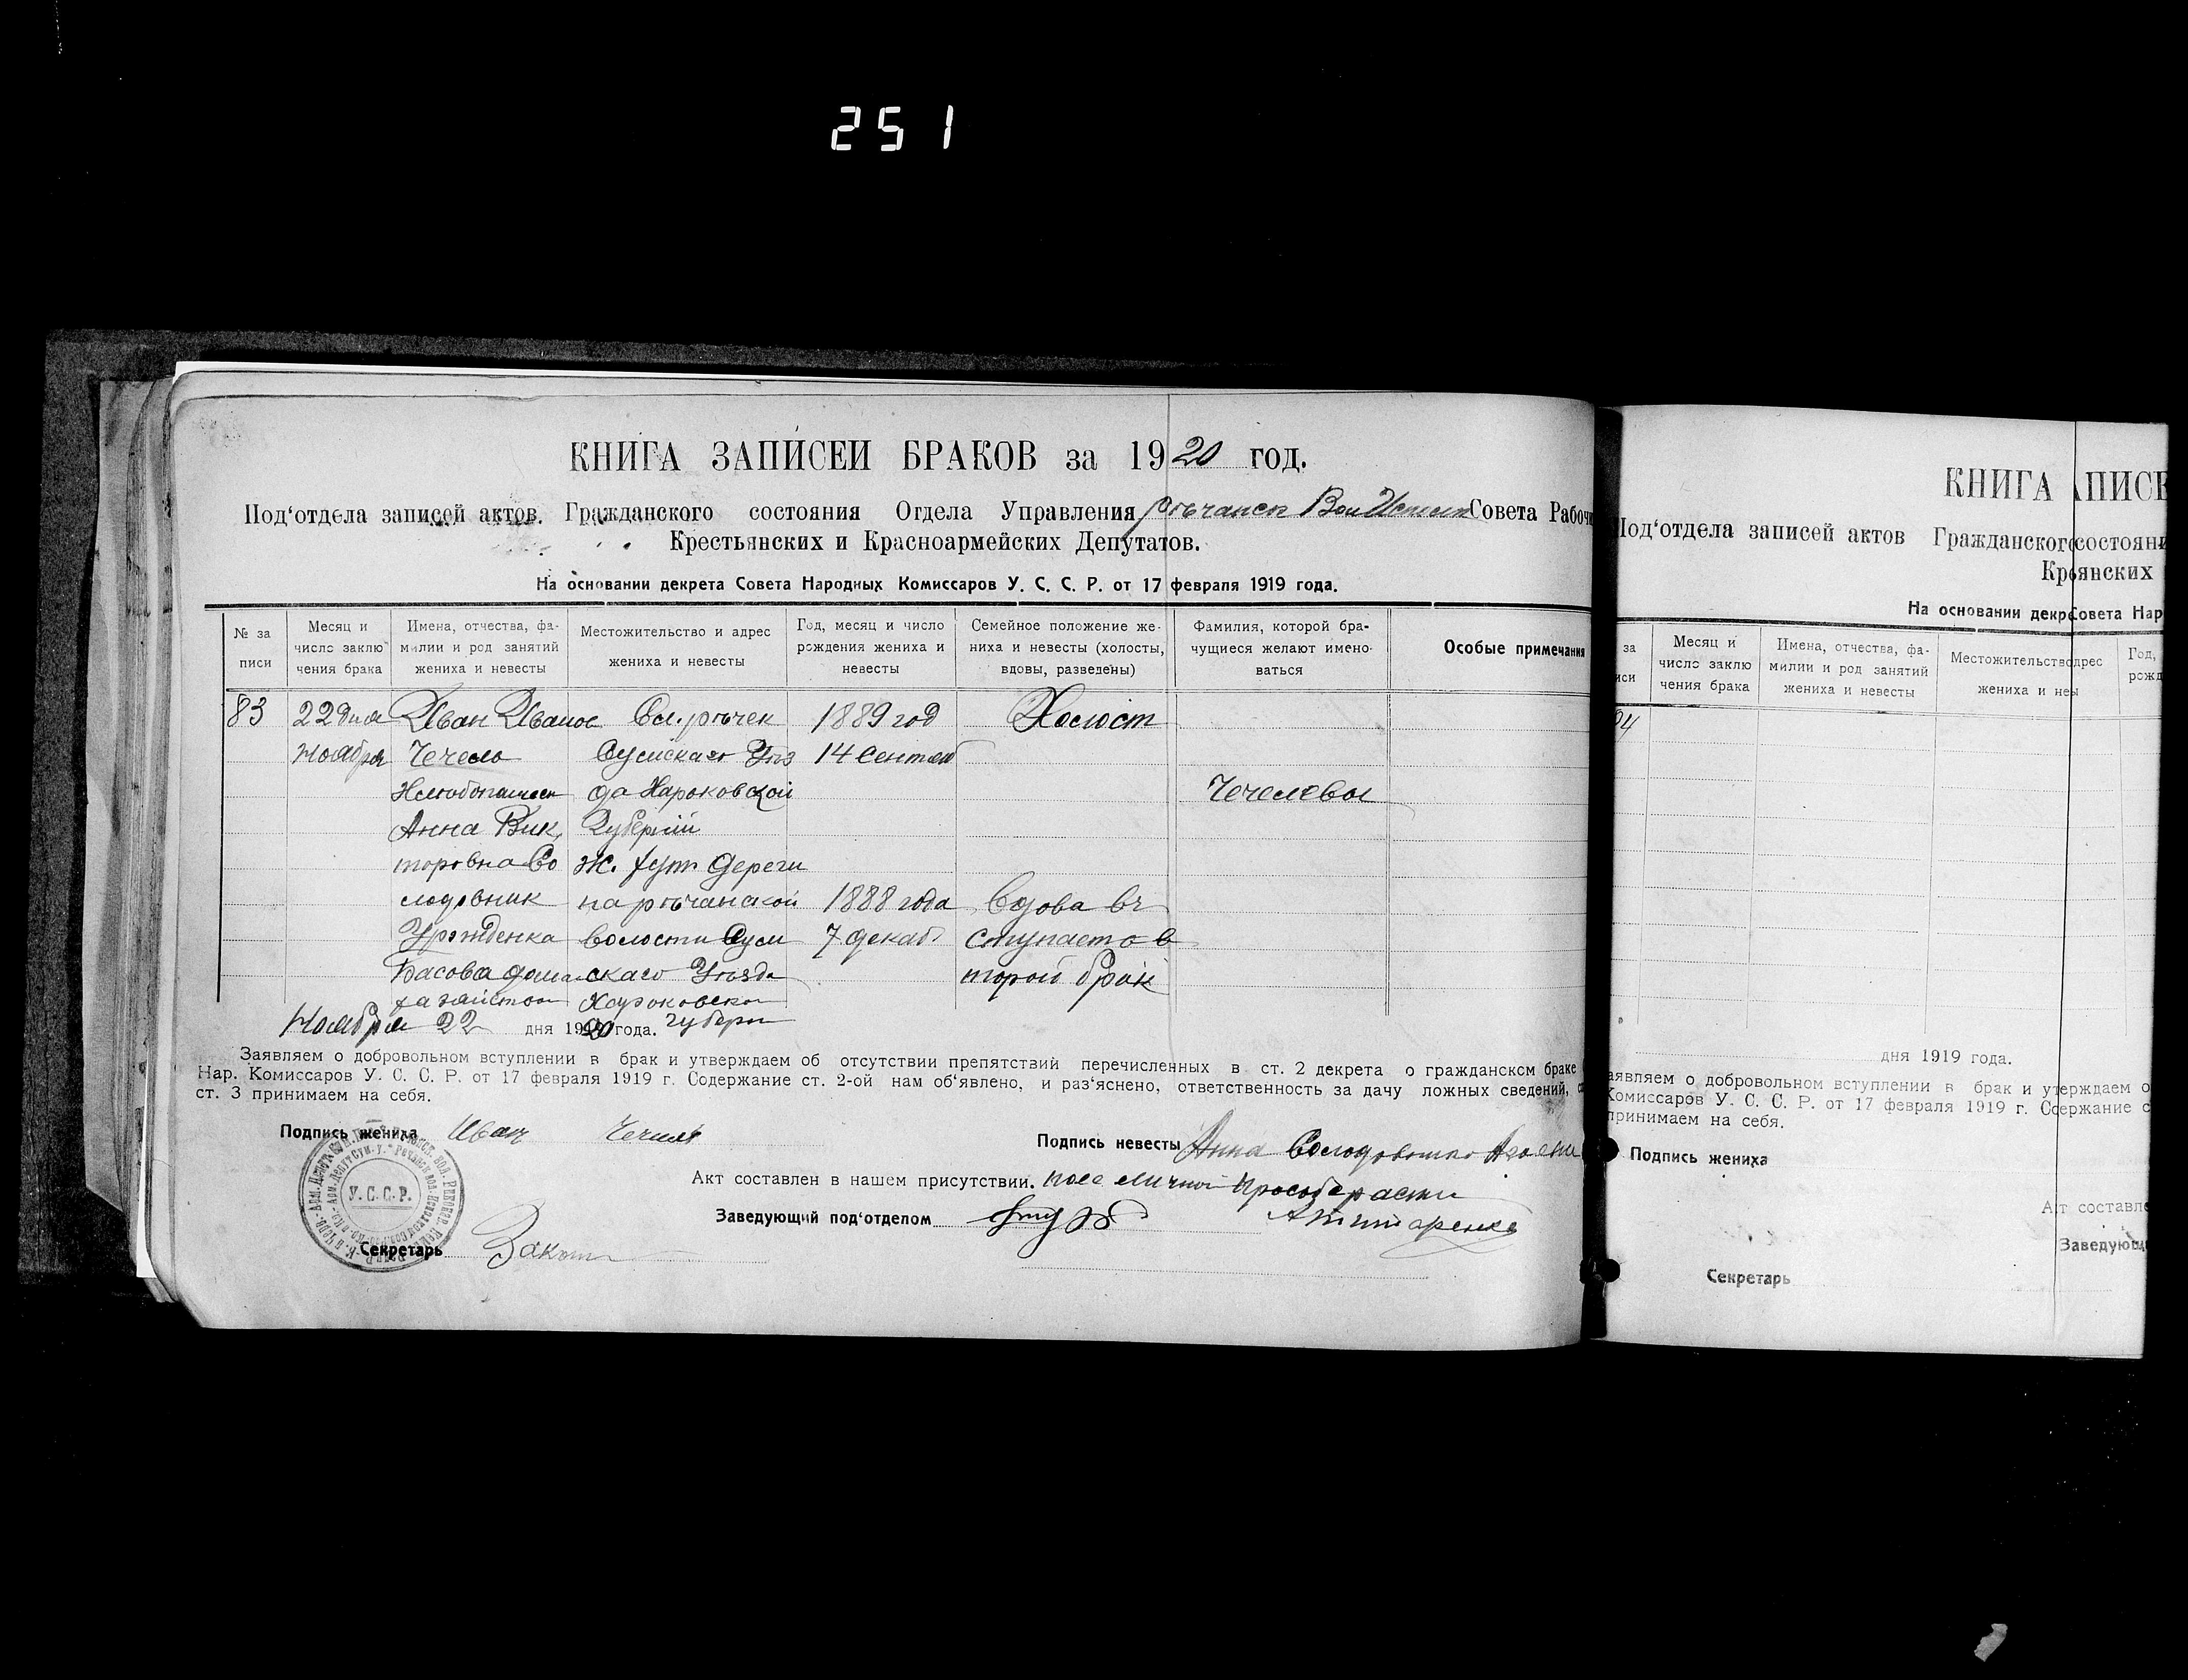 251
КНИГА ЗАПИСЕЙ БРАКОВ за 1920 год.
Под‘отдела записей актов. Гражданского состояния Отдела Управления Речанск Совета Рабочи
Крестьянских и Красноармейских Депутатов.
На основании декрета Совета Народных Комиссаров У. С. С. Р. от 17 февраля 1919 года.
№ за писи
Месяц и число заклю чения брака
Имена, отчества, фа- милии и род занятий жениха и невесты
Местожительство и адрес жениха и невесты
Год, месяц и число рождения жениха и невесты
Семейное положение же- ниха и невесты (холосты, вдовы, разведены)
Фамилия, которой бра- чущиеся желают имено- ваться
Особые примечания
83 22 дня Иван Иванов Сл. речек 1889 год Холост
ноября Чечель Сумскаго Уез 14 Сентяб
да Харьковской Чечелевы
Анна Вик, Губернии
торовна Со ж. хут. Дереги
лодовник на речанской 1888 года Вдова вч
Урожденка волости Сум 7 декаб. ступает в
Басова дома скаго Уезда торой брак
хазайство Харьковско
Ноября 22 дня 1920 года. губерн
Заявляем о добровольном вступлении в брак и утверждаем об отсутствии препятствий перечисленных в ст. 2 декрета о гражданском браке
Нар. Комиссаров У. С. С. Р. от 17 февраля 1919 г. Содержание ст. 2-ой нам об‘явлено, и раз‘яснено, ответственность за дачу ложных сведений,
ст. 3 принимаем на себя.
Подпись жениха Иван Чечиль
Подпись невесты Анна
Акт составлен в нашем присутствии.
Заведующий под‘отделом
У.С.С.Р.
Секретарь
КНИГА АПИСЕ
Под‘отдела записей актов Гражданского состояни
Кр янских
На основании декр Совета Нар
за иси
Месяц и число заклю чения брака
Имена, отчества, фа- милии и род занятий жениха и невесты
Местожительство дрес жениха и не ы
Год, рожд
94
дня 1919 года.
аявляем о добровольном вступлении в брак и утверждаем о
Комиссаров У. С. С. Р. от 17 февраля 1919 г. Сдержание с
принимаем на себя.
Подпись жениха
Акт составле
Заведующи
Секретарь